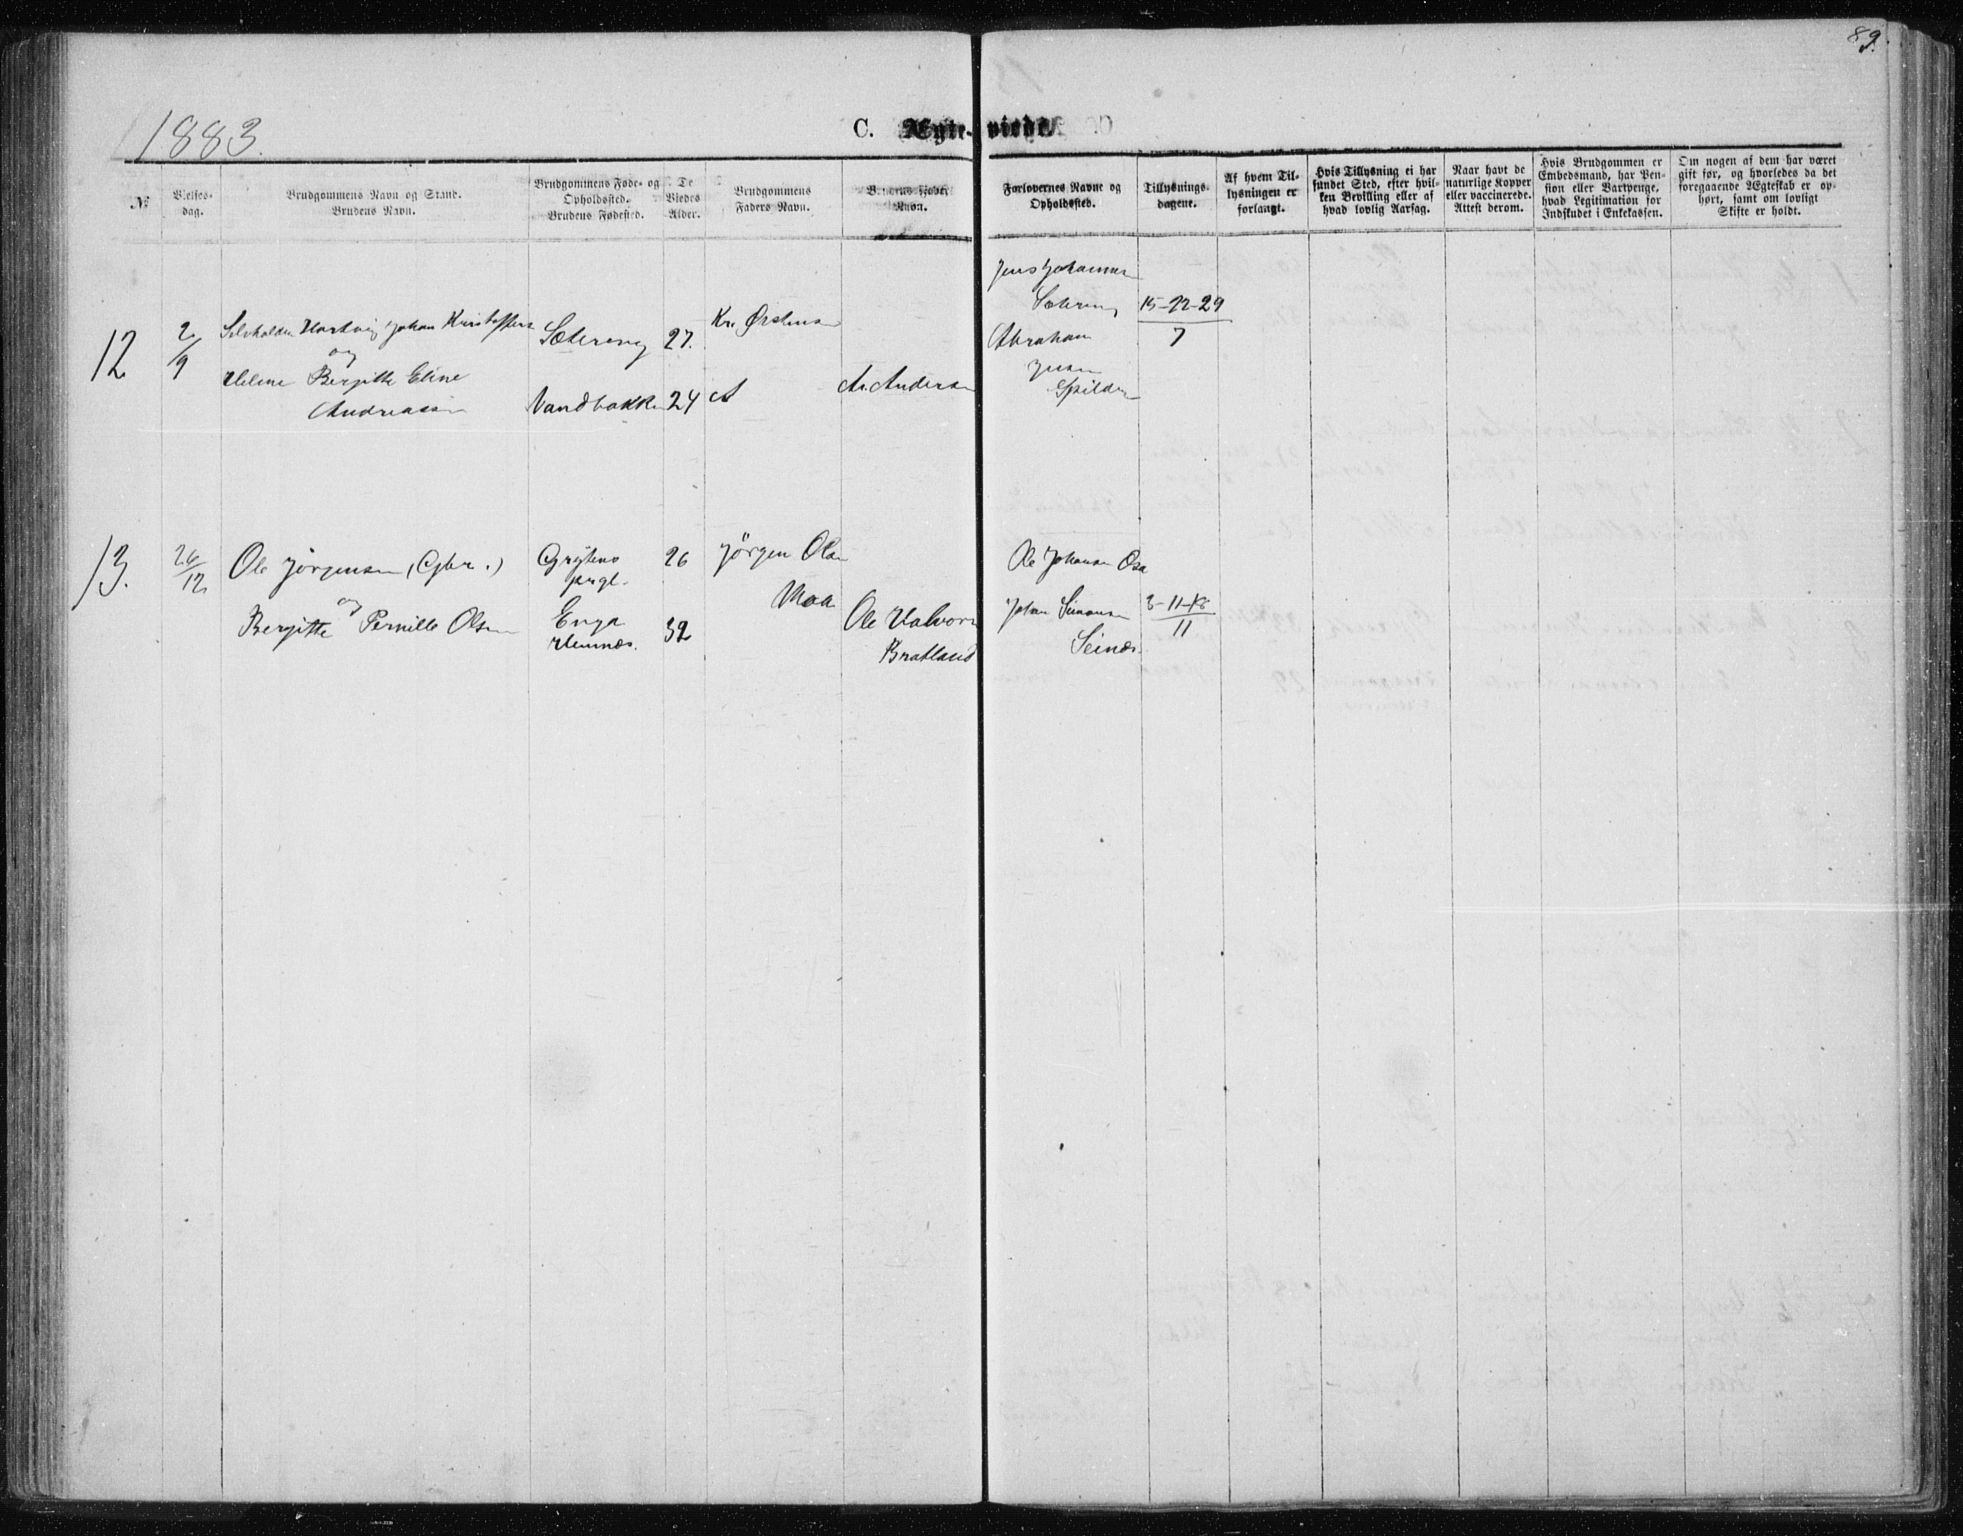 89.
1883.
C. Ægte-viede.
№
Vielses-
dag.
Brudgommens Navn og Stand.
Brudens Navn.
Brudgommens Føde- og
Opholdssted.
Brudens Fødested.
De
Viedes
Alder.
Brudgommens
Faders Navn.
Brudens Faders
Navn.
Forlovernes Navne og
Opholdssted.
Tillysnings-
dagene.
Af hvem Til-
lysningen er
forlangt.
Hvis Tillysning ei har
fundet Sted, efter hvil-
ken Bevilling eller af
hvad lovlig Aarsag.
Naar havt de
naturlige Kopper
eller vaccinerede.
Attest derom.
Hvis Brudgommen er
Embedsmand, har Pen-
sion eller Vartpenge,
hvad Legitimation for
Indskudet i Enkekassen.
Om nogen af dem har været
gift før, og hvorledes da det
foregaaende Ægteskab er op-
hørt, samt om lovligt
Skifte er holdt.
12
2/9
Hartvig Johan Kristoffers
og
Helene Bergitte Eline
Andreas
27.
Vandbakke 24
Kr.
An. Anders
Jens Johannes
15-22-29
7
Abraham
Jensen
Spilder
13.
26/12
Ole Jørgensen, (Gbr.)
og
Bergitte Pernille Olsen
prgl.
Enga
Hemnæs.
26
32
Jørgen Olsen
Moa
Ole Halvors
Bratland
Ole Johansen Osa
Johan Simonsen
Seines
11